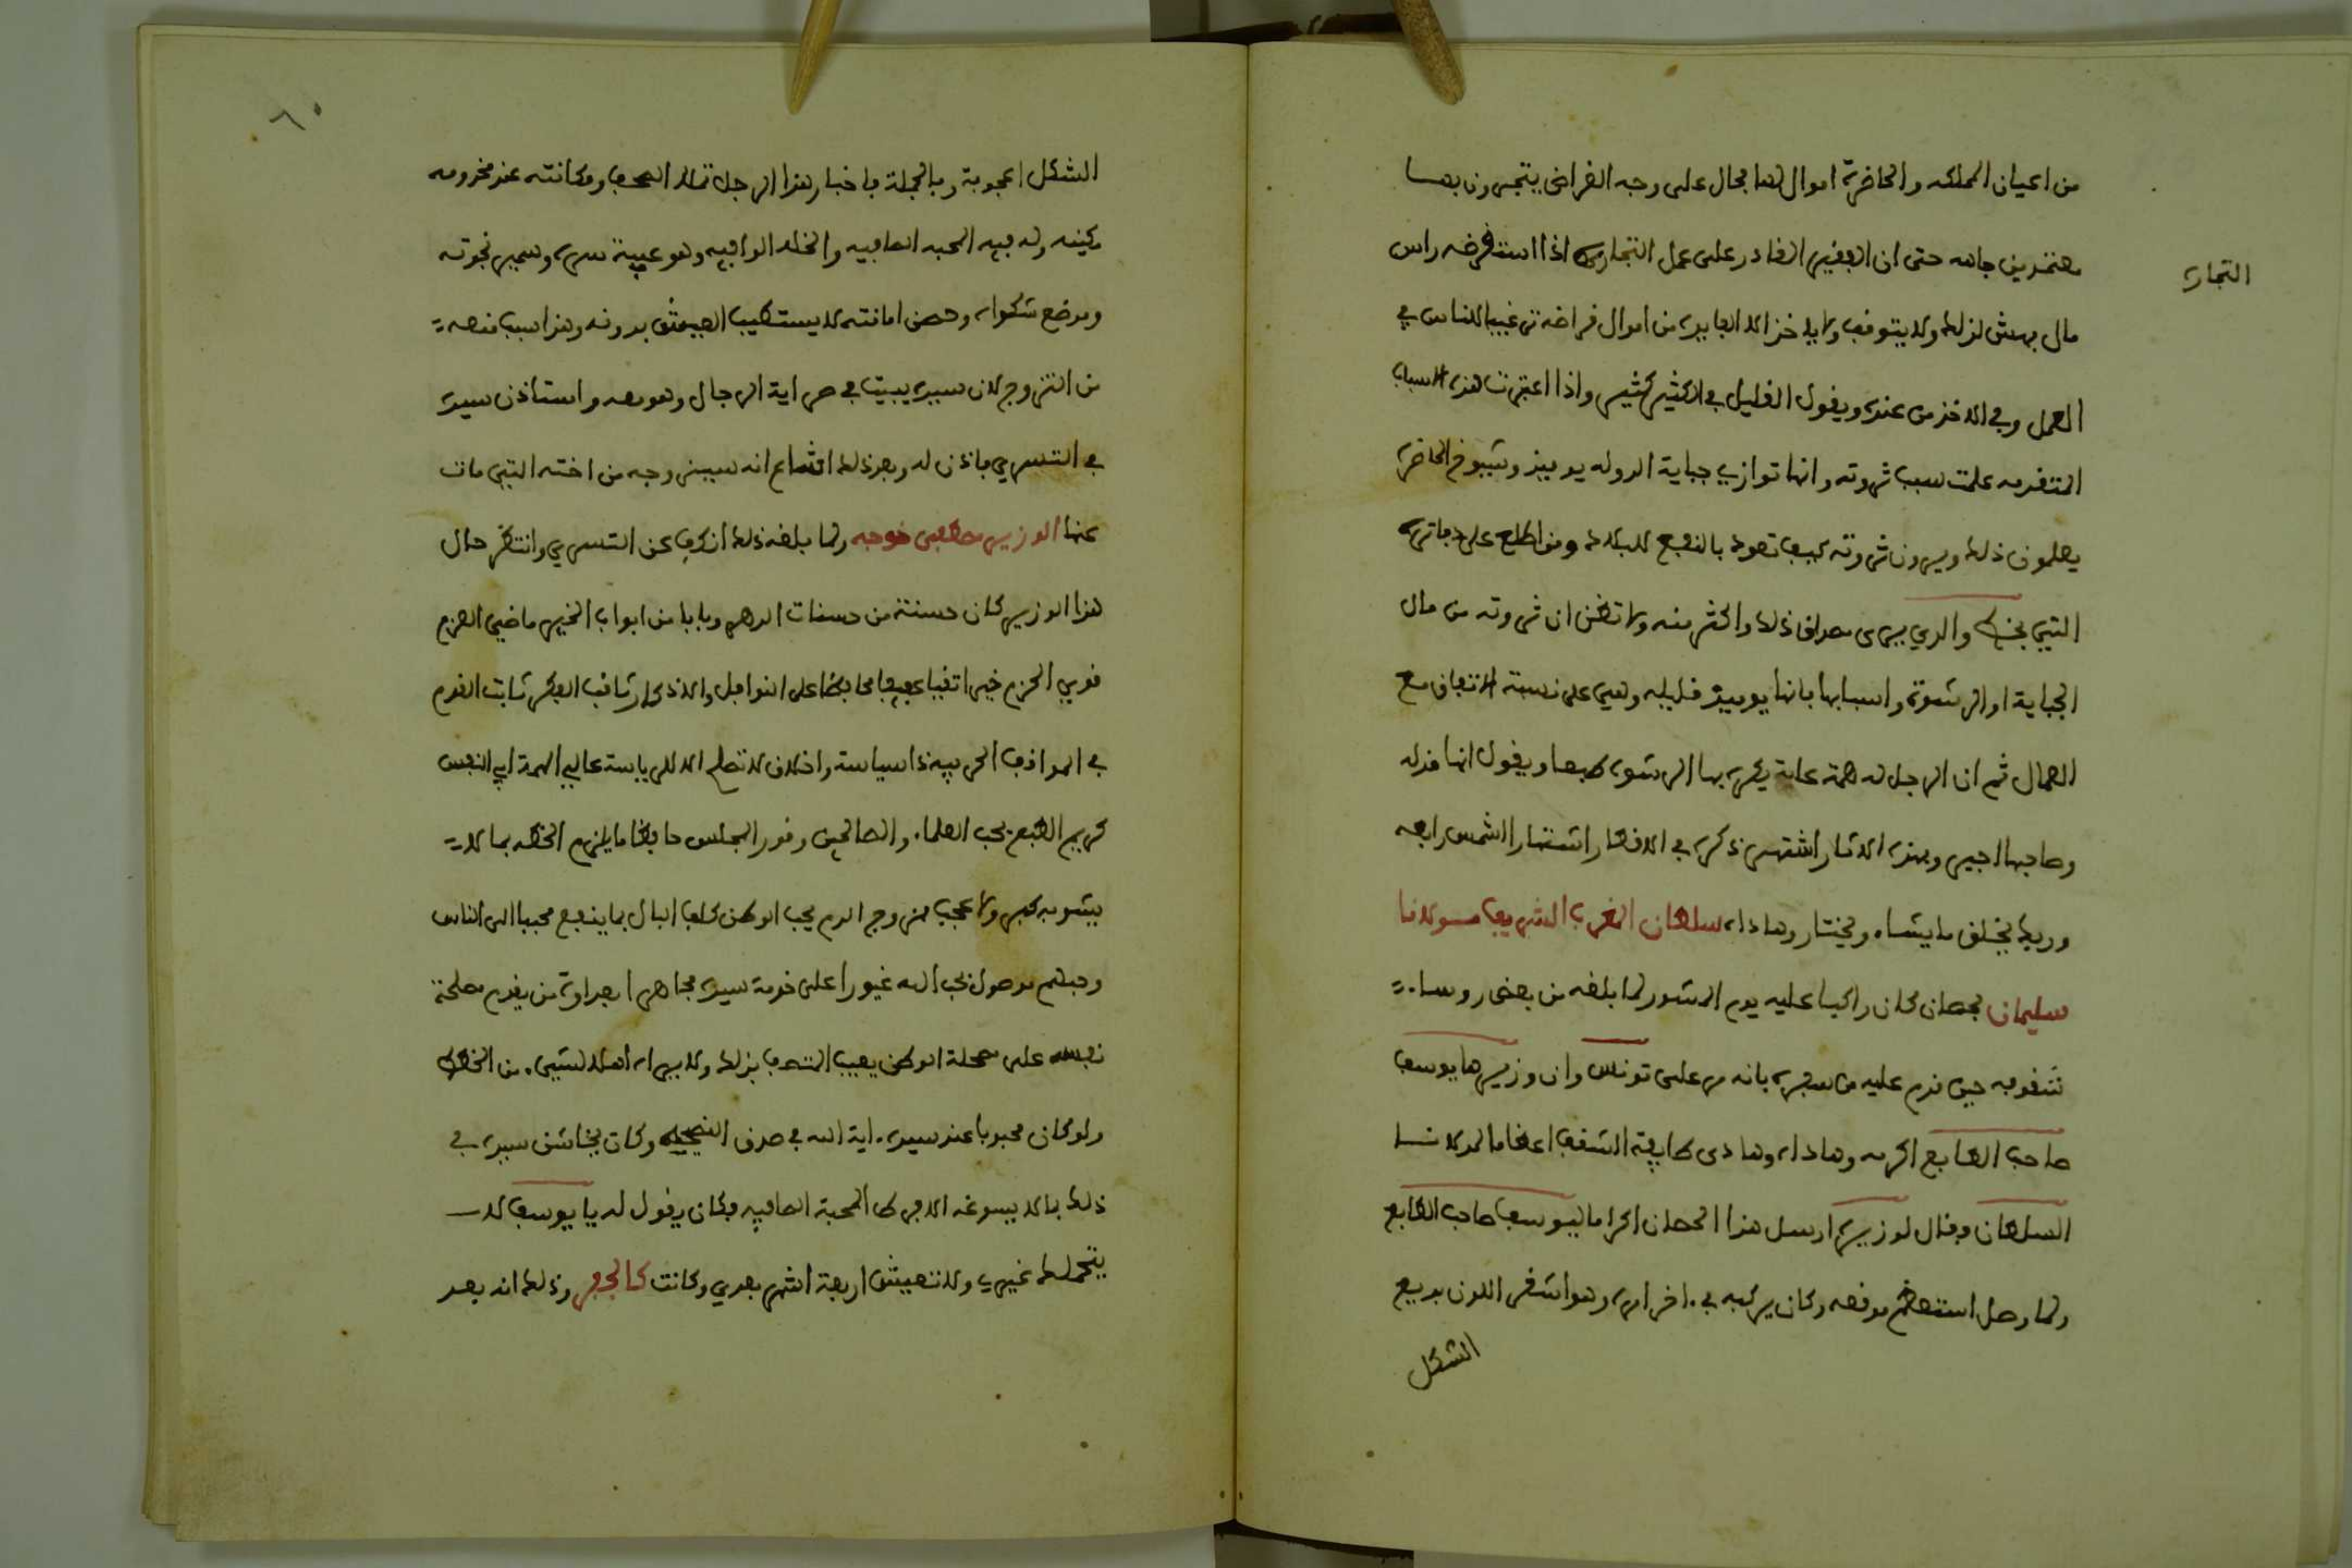 من اعيان المملكه والحاضرة اموال لها بحال على وجه القراض يتجرون بها
معتمدين جاهه حتى ان الفقير القادر على عمل التجارة اذا استقرضه راس
التجارة
مال يهش لذلك ولا يتوقف ولا ياخذ الا من اموال قراضه ترغيبا للناس في
العمل وفي الاخذ من عنده ويقول القليل في الكثير كثير واذا اعتبرت هذه الاسباب
المتقدمه علمت سبب ثروته وانها توازي جباية الدوله يوميذ وشيوخ الحاضرة
يعلمون ذلك ويرون ثروته كيف تعود بالنفع للبلاد ومن اطلع على دفاتره
التي بخط والدي يرى مصداق ذلك واكثر منه ولا تظن ان ثروته من مال
الجباية او الرشوة واسبابها فانها يوميذ قليله وهي على نسبة الاتفاق مع
العمال ثم ان الرجل له همة عاية يكره بها الرشوه طبعا ويقول انها مذله
وصاحبها اجير وبهذه الاثار اشتهر ذكره في الاقطار اشتهار الشمس رابعه
وربك يخلق ما يشاء ويختار وهاداه سلطان المغرب الشريف مولانا
سليمان بحصان كان راكبا عليه يوم المشور لما بلغه من بعض روساء
شقوفه حين قدم عليه من سفره بانه مر على تونس وان وزيرها يوسف
صاحب الطابع اكرمه وهاداه وهادى طايفة الشقف اعظاما لمولانا
السلطان وقال لوزيره ارسل هذا الحصان اكراما ليوسف صاحب الطابع
ولما وصل استعظم موقعه وكان يركبه في اخر امره وهو اشقر اللون بديع
الشكل
٦٠
الشكل اعجوبة وبالجملة فاخبار هذا الرجل تملا الصحف ومكانته عند مخدومه
مكينه وله فيه المحبه الصافيه والخله الوافيه وهو عيبة سره وسمير نجوته
وموضع شكواه وحصن امانته لا يستطيب العيش بدونه وهذا سبب منعه
من التزوج لان سيده يبيت في صراية الرجال وهو معه واستاذن سيده
في التسري فاذن له وبعد ذلك اشاع انه سيزوجه من اخته التي مات
عنها الوزير مصطفى خوجه ولما بلغه ذلك انكف عن التسري وانتظر حال
هذا الوزير كان حسنة من حسنات الدهر وبابا من ابواب الخير ماضي العزم
قوي الحزم خيرا تقيا عفيفا محافظا على النوافل والاذكار ثاقب الفكر ثابت القدم
في المواقف الحربيه ذا سياسة واخلاق لا تصلح الا للرياسة عالي الهمة ابي النفس
كريم الطبع يحب العلماء والصالحين وقور المجلس حافظا ما يلزم الخطه بما لا
يشوبه كبر ولا عجب ممزوج الدم بحب الوطن كلف البال بما ينفع محببا الى الناس
وحبلهم موصول بحب الله غيورا على خدمة سيده مجاهرا بعداوة من يقدم مصلحة
نفسه على مصلحة الوطن يعيب المتصف بذلك ولا يراه اهلا لشيء من الخطط
ولو كان محبوبا عند سيده اية الله في صدق النصيحه وكان يخاشن سيده في
ذلك بما لا يسوغه الا فرط المحبة الصافيه فكان يقول له يا يوسف لا
يتحملك غيري ولا تعيش اربعة اشهر بعدي وكانت كالجفر وذلك انه بعد